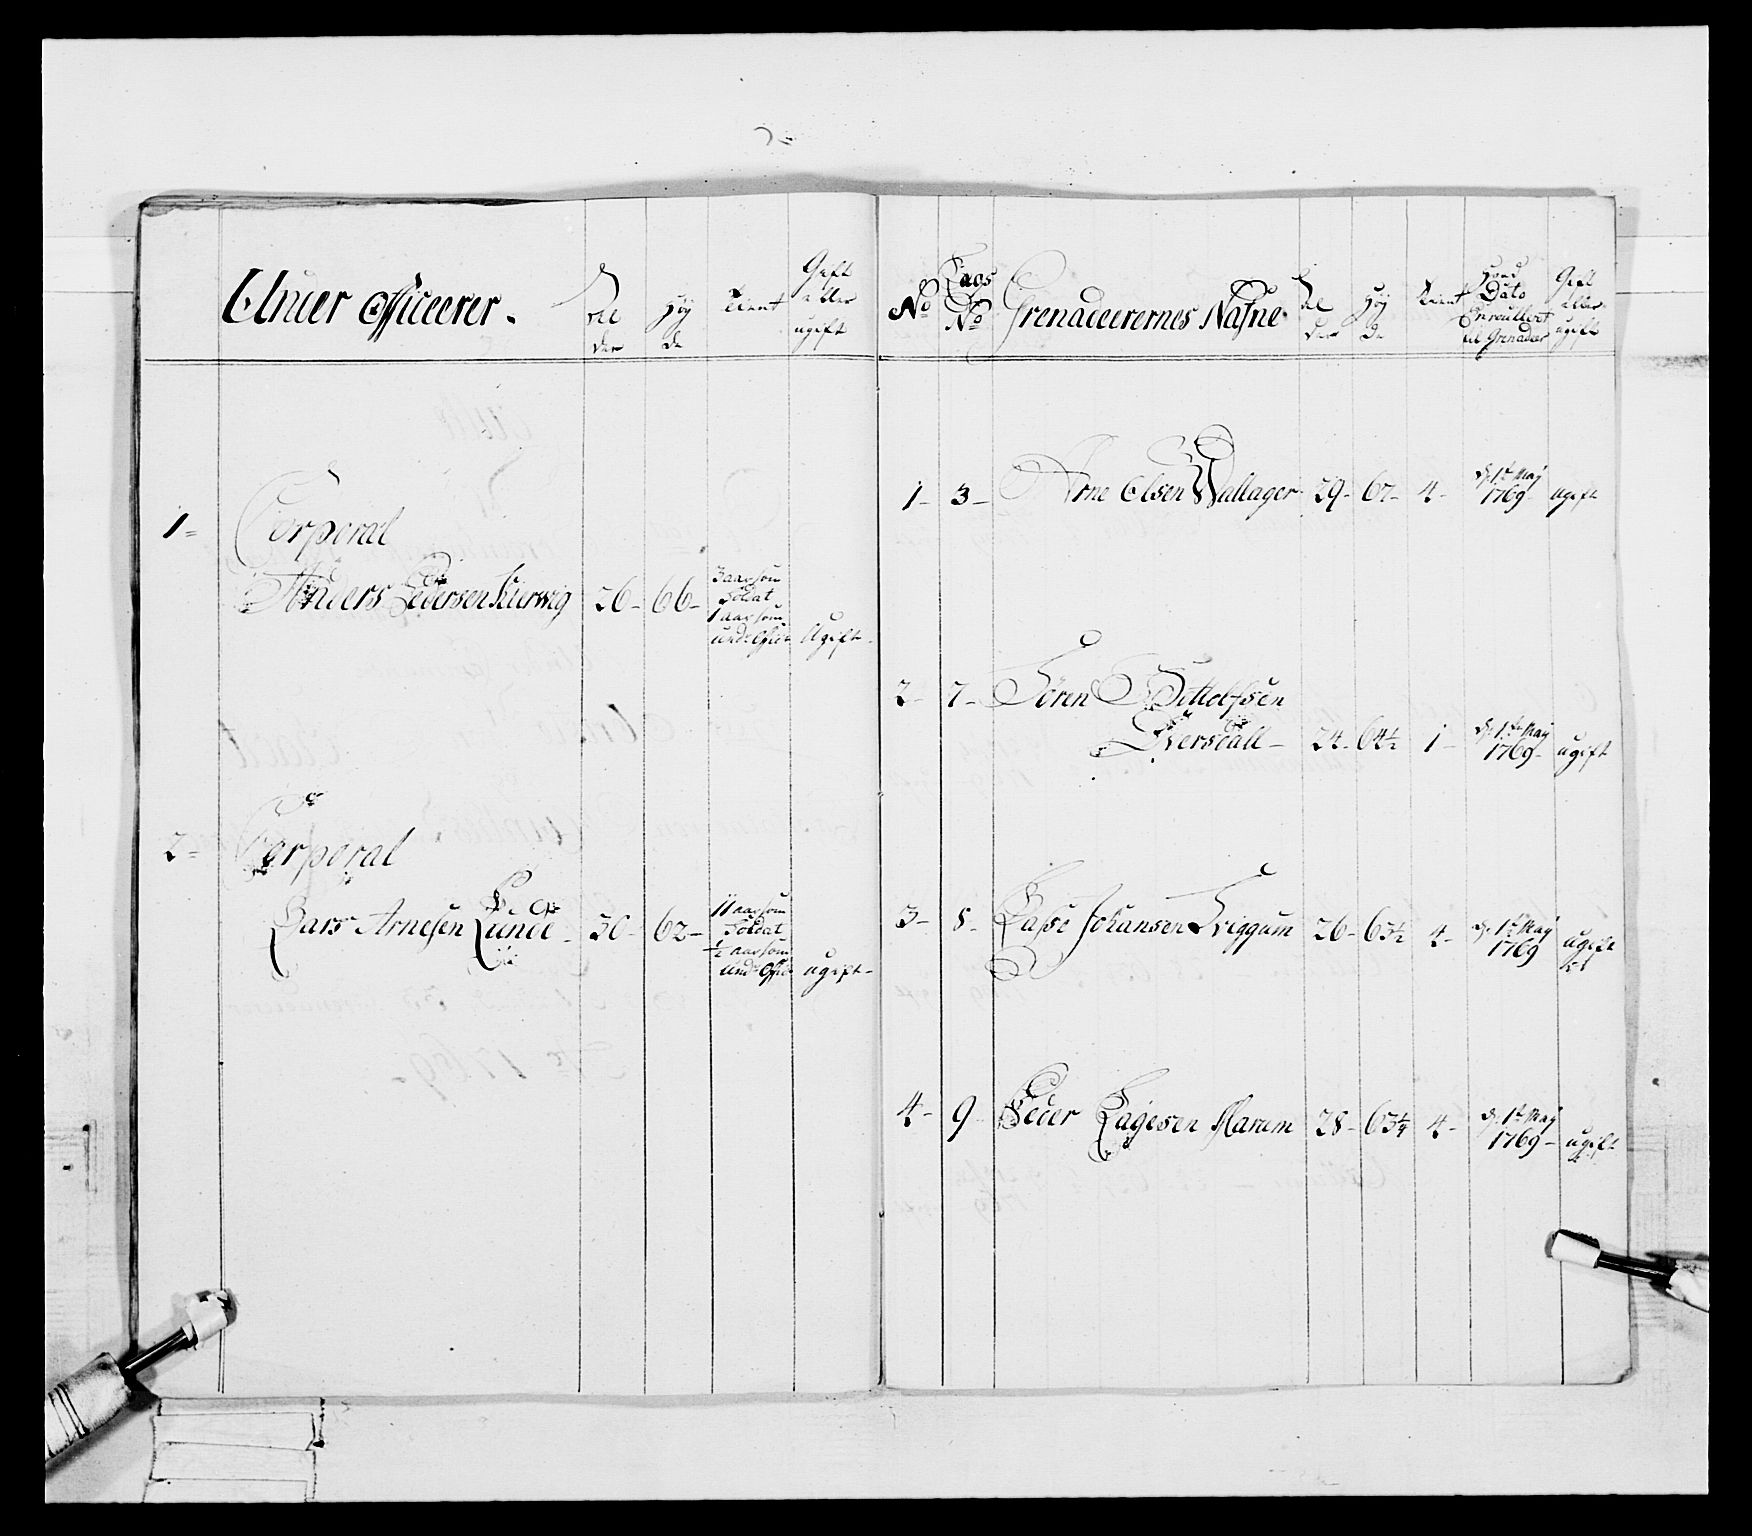 Under Officeerer.
Al
der
Høy
de
tient
Gift
eller
ugift
1-
Corporal
Anders Pedersen Kierwig 26- 66-
3 aar som
Soldat
1 aar som
und: Offic:
Ugift-
2-
Corporal
Lars Arnesen Lunde- 30- 62-
11 aar som
Soldat
1/2 aar som
und: Offic:
ugift-
No
Lags
No
Grenadeerernes Nafne
Al
der
Høy
de
tient
Dato
Enroullert
til Grenadeer
Gift
eller
ugift
1- 3- Arne Olsen Wallager 29- 67- 4- d: 1te May 1769- ugift
2- 7- Søren Dittlefsen
24- 64 1/2 1- d: 1te May 1769- ugift
3- 8- Lasse Johansen Triggum 26- 63 1/2 4- d: 1te May 1769 ugift
4- 9 Peder Lagesen Marum 28- 63 1/4 4- d: 1te May 1769- ugift